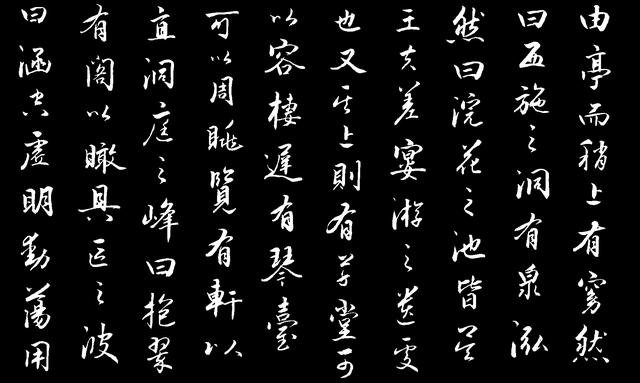 由亭而稍上有窈然
曰西施之洞有泉泓
然曰浣花之池皆吳
王夫差宴游之遺處
也又其上則有草堂可
以容棲遲有琴臺
可以周眺覽有軒以
直洞庭之峰曰抱翠
有閣以瞰具區之波
曰涵空虛明動蕩用